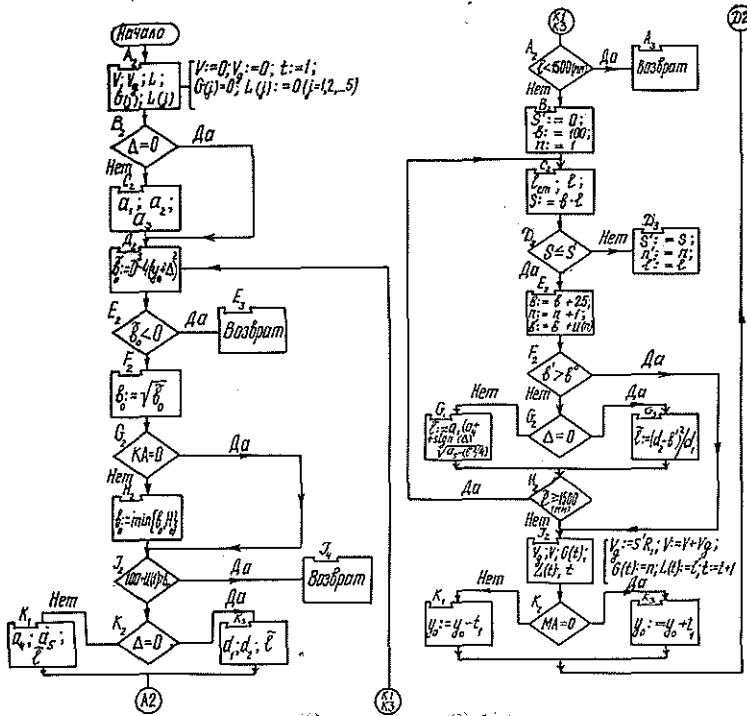 Начало
A₂
V; Vg; L;
G(j); L(j)
V:=0; Vg:=0; t:=1;
G(j)=0; L(j):=0 (j=1,2,..5)
B₂
Δ=0
Да
Нет
C₂
a₁; a₂;
a₃
Д₂
E₂
b̃₀<0
Да
E₃
Возврат
F₂
b₀:=√b̃₀
G₂
KA=0
Да
Нет
H₂
b₀:=min{b₀,H₀}
J₂
Да
J₄
Возврат
K₂
Δ=0
Нет
Да
K₁
a₄; a₅;
l̃
K₃
d₁; d₂; l̃
A2
K1
K3
K1
K3
A₂
Да
Нет
A₃
Возврат
B₂
S':=0;
b:=100;
n:=1
C₂
lст; l;
S:=b·l
D₂
S≤S'
Нет
Да
D₃
S':=S;
n':=n;
l':=l
E₂
b:=b+25;
n:=n+1;
b':=b+u(n)
F₂
b'>b⁰
Да
Нет
G₂
Δ=0
Нет
Да
G₁
G₃
l̃:=(d₂-b'²)/d₁
H₂
l≥1500
(mm)
Да
Нет
J₂
Vg; V; G(t);
L(t), t
Vg:=S'R₁; V:=V+Vg;
G(t):=n; L(t):=l; t:=t+1
K₂
MA=0
Нет
Да
K₁
y₀:=y₀-t₁
K₃
y₀:=y₀+t₁
D2